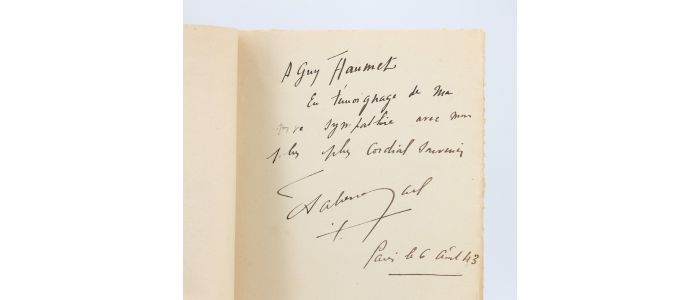 A Guy Haumet
En témoignage de ma
sympathie avec mon
plus cordial souvenir
Paris le 6 Avril 43